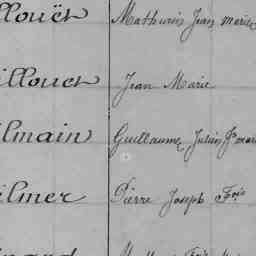 llouët Mathurin Jean Marie
illouet Jean Marie
ilmain Guillaume Julien Jn mari
ilmer Pierre Joseph Fois